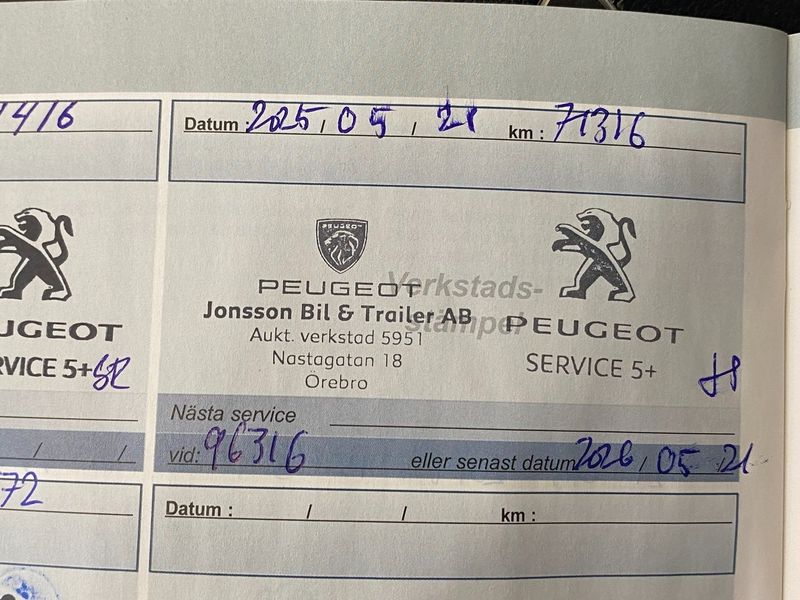 1416
Datum : 2025 / 05 / 21 km : 71316
PEUGEOT
PEUGEOT
Verkstads-
stämpel
Jonsson Bil & Trailer AB
Aukt. verkstad 5951
Nastagatan 18
Örebro
PEUGEOT
SERVICE 5+
UGEOT
RVICE 5+
Nästa service
vid: 96316 eller senast datum 2026 / 05 / 21
/ /
72
Datum : / / km :